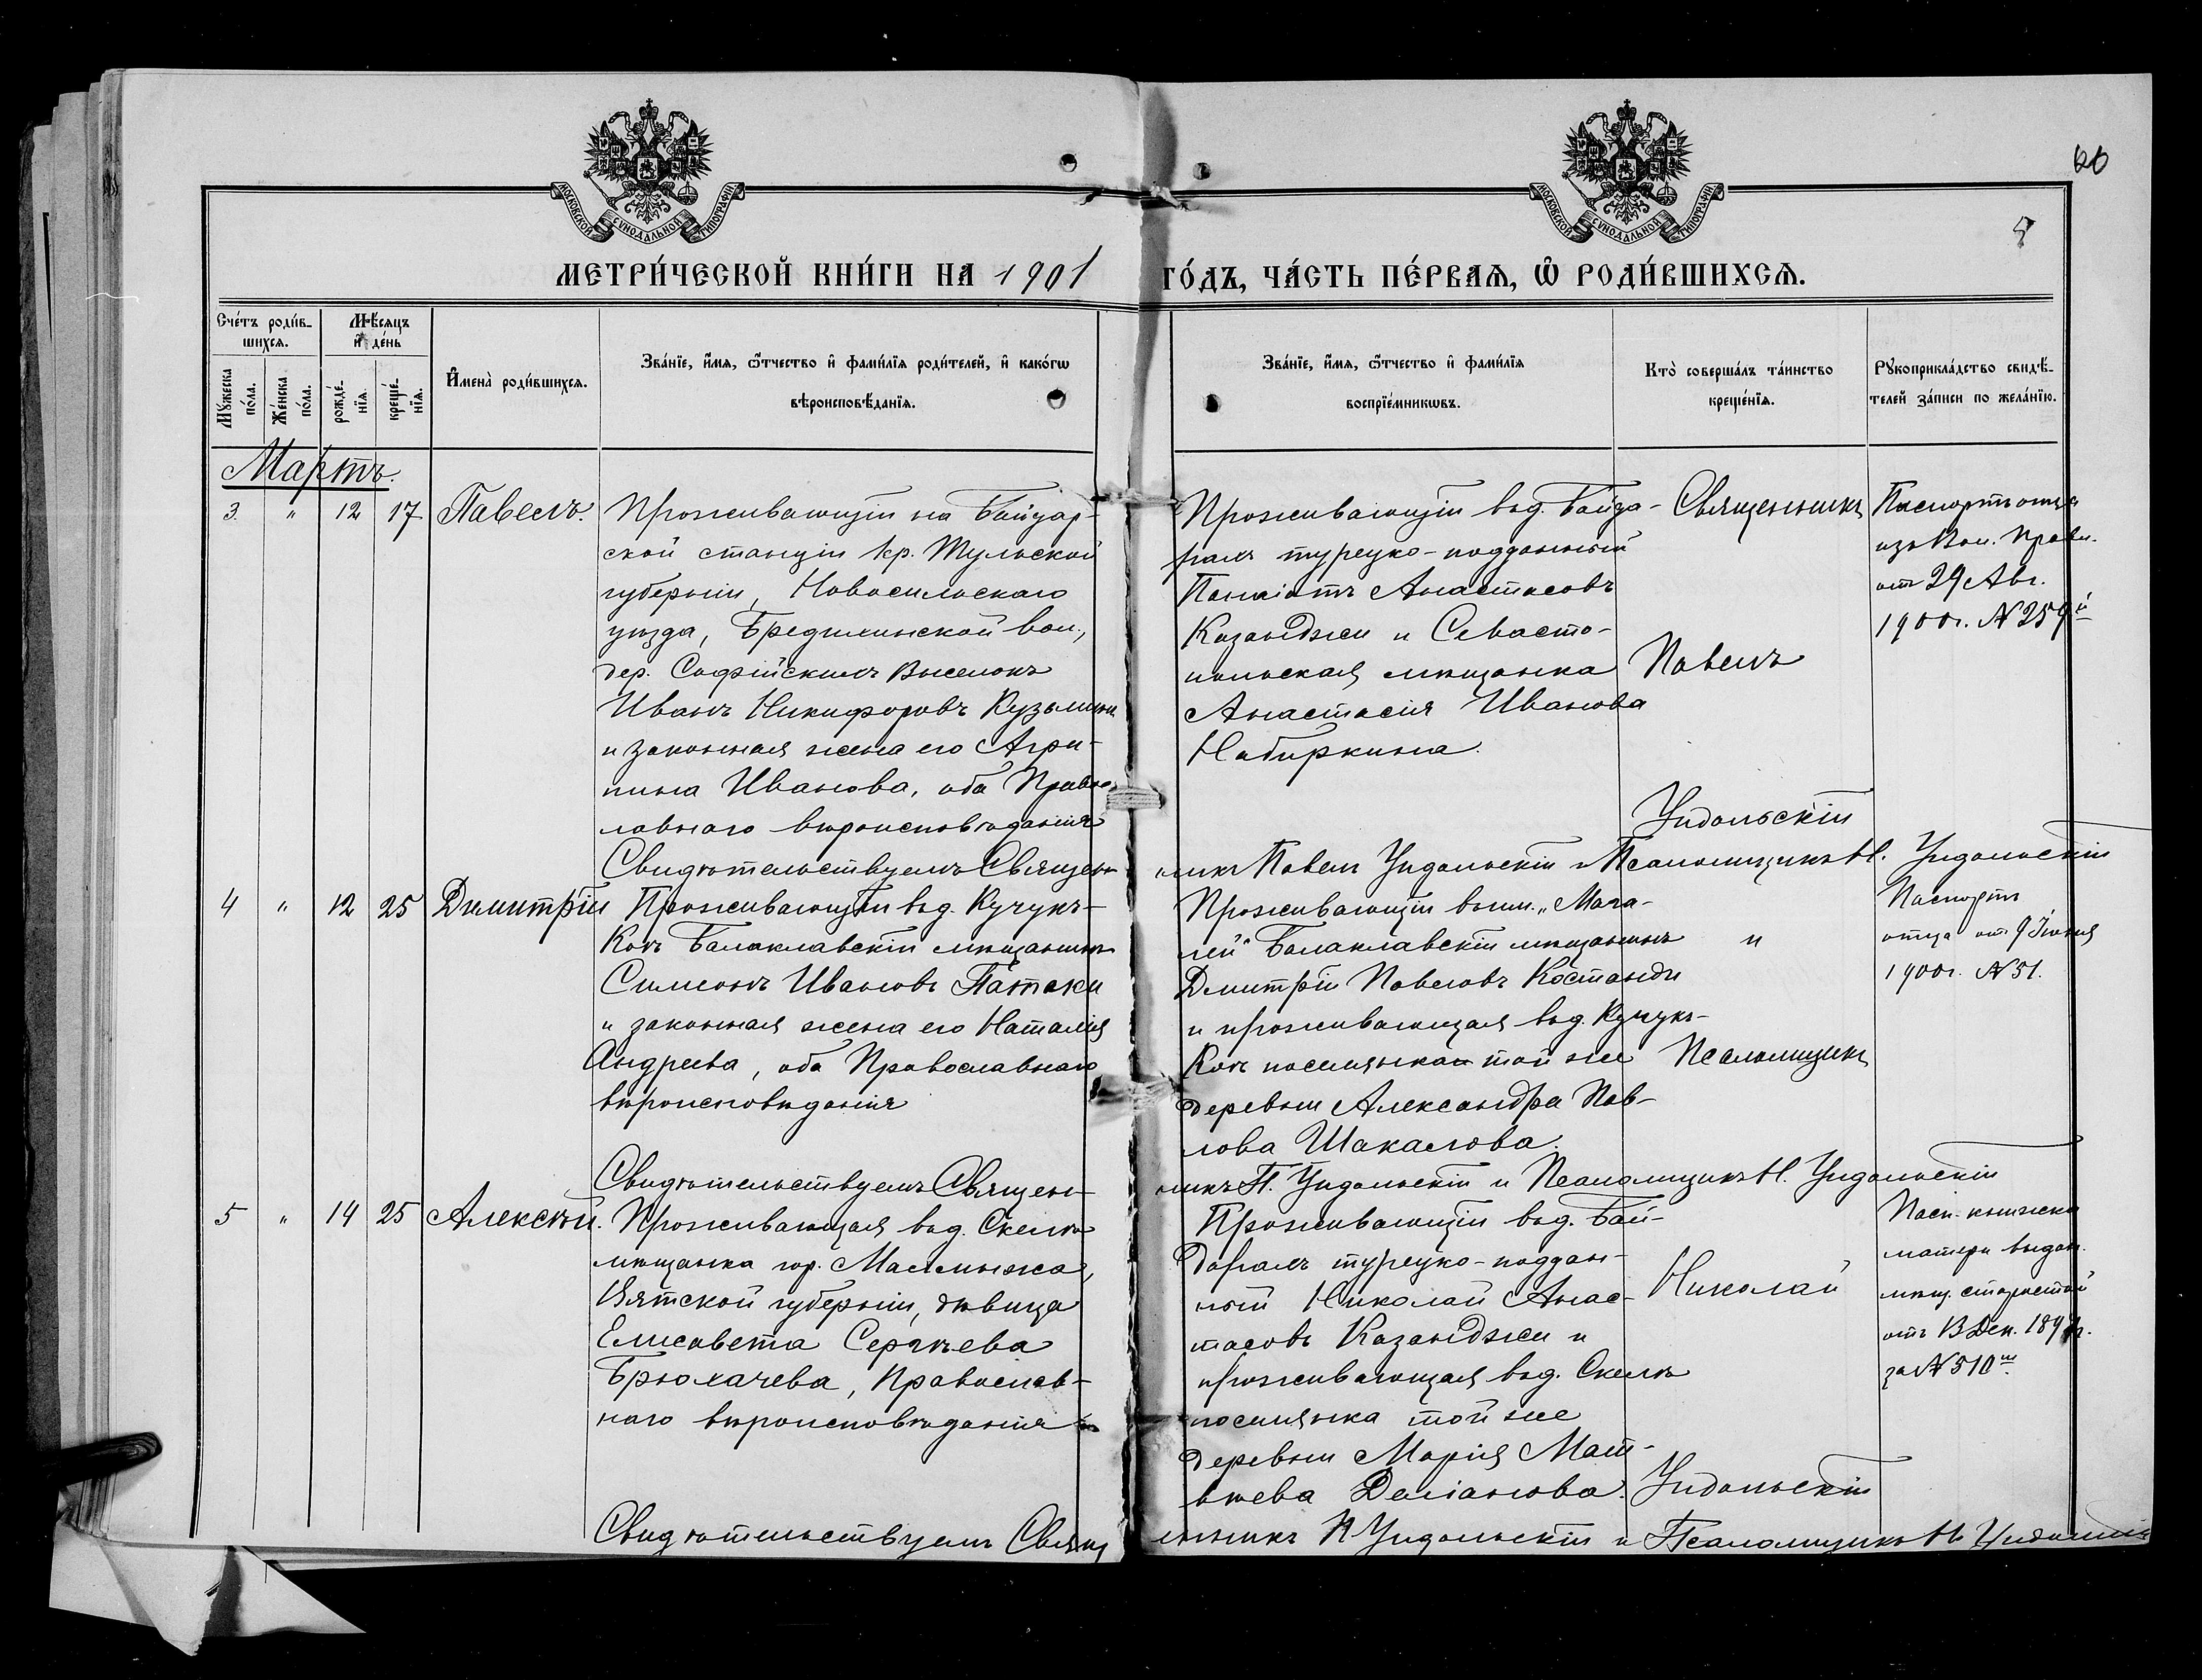 МОСКОВСКОЙ СУНОДАЛЬНОЙ ТИПОГРАФІИ
МОСКОВСКОЙ СУНОДАЛЬНОЙ ТИПОГРАФІИ
60
МЕТРИ́ЧЕСКОЙ КНИ́ГИ НА 1901 ГО́ДЪ, ЧА́СТЬ ПЕ́РВАѦ, Ѡ РОДИ́ВШИХСѦ.
Сче́тъ роди́в-
шихсѧ.
Мѣ́сѧцъ
и де́нь
Му́жеска
по́ла.
Же́нска
по́ла.
рожде́-
нїѧ.
креще́-
нїѧ.
И҆мена̀ роди́вшихсѧ.
Зва́нїе, и҆́мѧ, ѻ҆́тчество и҆ фами́лїѧ роди́телей, и҆ како́гѡ
вѣроисповѣ́данїѧ.
Зва́нїе, и҆́мѧ, ѻ҆́тчество и҆ фами́лїѧ
воспрїе́мникѡвъ.
Кто̀ соверша́лъ та́инство
креще́нїѧ.
Рꙋкоприкла́дство свидѣ́-
телей за́писи по жела́нїю.
Мартъ.
3. " 12 17 Павелъ.
Проживающій на Байдар-
ской станціи кр. Тульской
губерніи, Новосильскаго
уѣзда, Бредихинской вол.,
дер. Софійскихъ Выселокъ
Иванъ Никифоровъ Кузьминъ
и законная жена его Агри-
пина Иванова, оба Правос-
лавнаго вѣроисповѣданія
Проживающій въ д. Байда-
рахъ турецко-подданный
Панаіотъ Анастасовъ
Казанджи и Севасто-
польская мѣщанка
Анастасія Иванова
Набиркина.
Священникъ
Павелъ
Ундольскій
Паспортъ отца
изъ Вол. Правл.
отъ 29 Авг.
1900 г. №259й
Свидѣтельствуемъ Священникъ Павелъ Ундольскій и Псаломщикъ Н. Ундольскій
4 " 12 25 Димитрій
Проживающій въ д. Кучукъ-
Кой Балаклавскій мѣщанинъ
Симеонъ Ивановъ Патаки
и законная жена его Наталія
Андреева, оба Православнаго
вѣроисповѣданія
Проживающій въ им. "Мача-
лей" Балаклавскій мѣщанинъ
Дмитрій Павловъ Костанди
и проживающая въ д. Кучукъ-
Кой поселянка той же
деревни Александра Пав-
лова Шакалова.
и
Псаломщикъ
Паспортъ
отца отъ 9 Іюня
1900 г. №51.
Свидѣтельствуемъ Священникъ П. Ундольскій и Псаломщикъ Н. Ундольскій
5 " 14 25 Алексѣй.
Проживающая въ д. Скеля
мѣщанка гор. Малмыжа,
Вятской губерніи, дѣвица
Елисавета Сергѣева
Брюхачева, Православ-
наго вѣроисповѣданія
Проживающій въ д. Бай-
дарахъ турецко-поддан-
ный Николай Анас-
тасовъ Казанджи и
проживающая въ д. Скеля
поселянка той же
деревни Марія Мат-
вѣева Деліанова.
Николай
Ундольскій
Пасп. книжка
матери выдан.
мѣщ. старостой
отъ 13 Дек. 189
за №510
Свидѣтельствуемъ Священникъ П Ундольскій и Псаломщикъ Н. Ундольскій